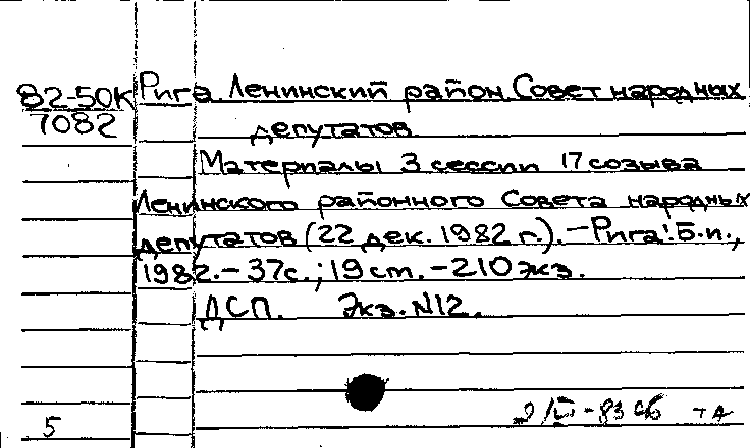 82-50К Рига. Ленинский район. Совет народных
7082 депутатов
Материалы 3 сессии 17 созыва
Ленинского районного Совета народных
депутатов (22 дек. 1982 г.). - Рига: б.и.,
1982. - 37с.; 19 ст. - 210 экз.
ДСП. Экз. N12.
5